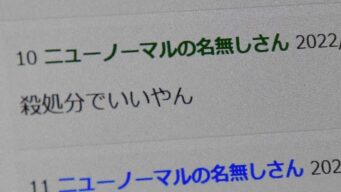 10 ニューノーマルの名無しさん 2022/
殺処分でいいやん
11 ニューノーマルの名無しさん 202